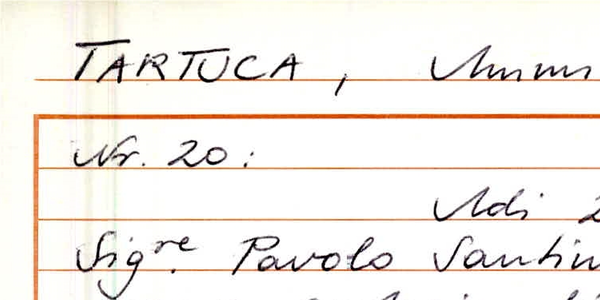 TARTUCA,
Nr. 20:
Adi 2
Sigre. Pavolo Santin